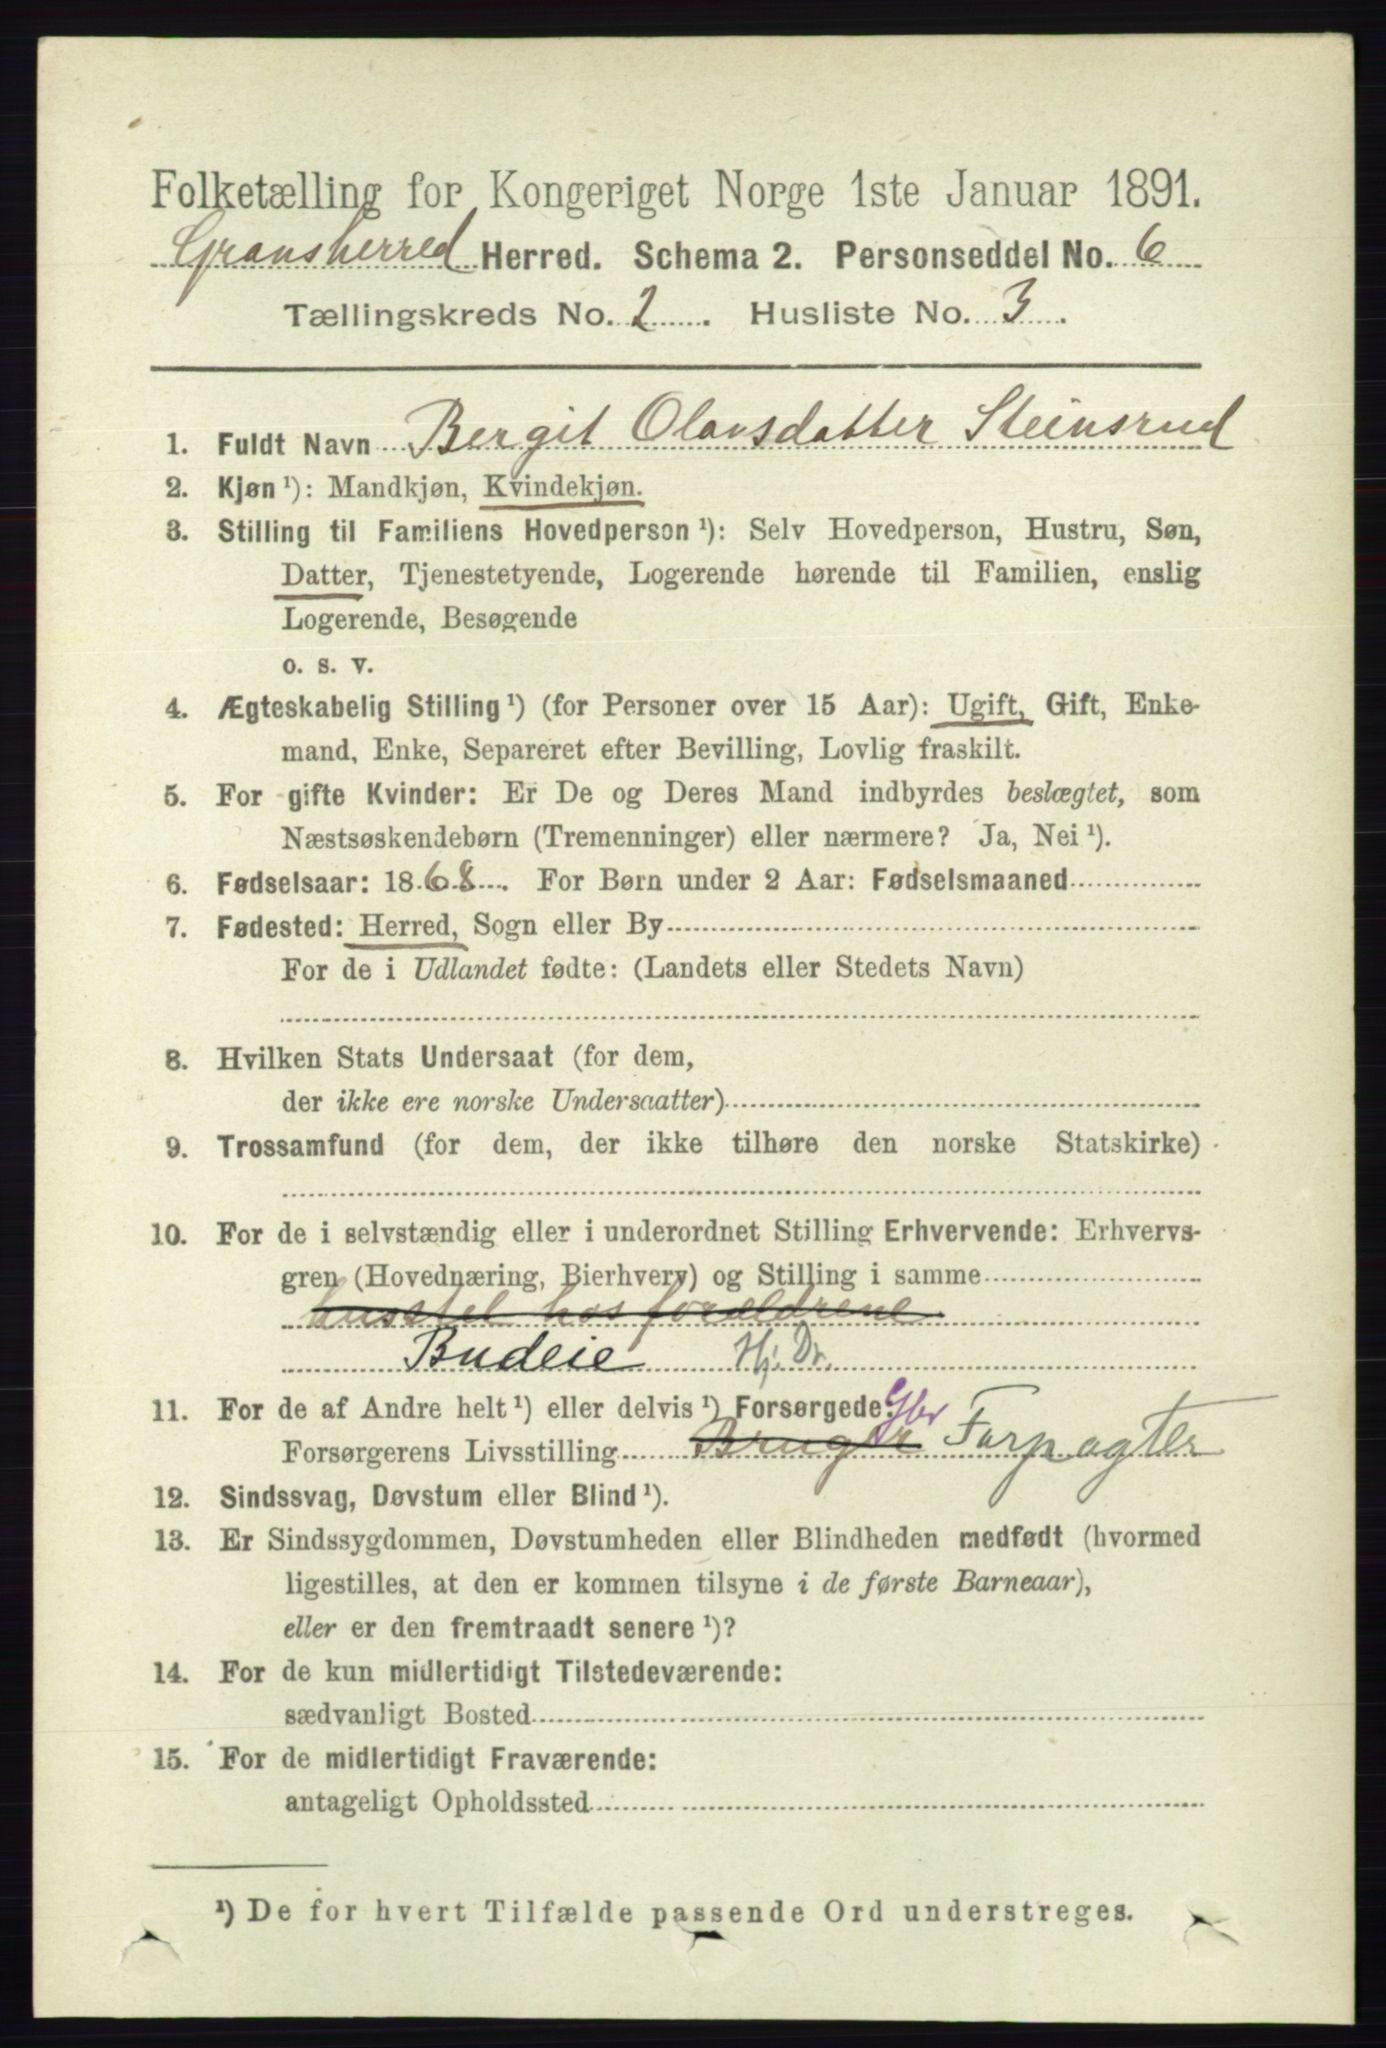 Folketælling for Kongeriget Norge 1ste Januar 1891.
Gransherred Herred. Schema 2. Personseddel No. 6
Tællingskreds No. 2. Husliste No. 3.
1. Fuldt Navn Bergit Olavsdatter Steinsrud
2. Kjøn ¹): Mandkjøn, Kvindekjøn.
3. Stilling til Familiens Hovedperson ¹): Selv Hovedperson, Hustru, Søn,
Datter, Tjenestetyende, Logerende hørende til Familien, enslig
Logerende, Besøgende
o. s. v.
4. Ægteskabelig Stilling ¹) (for Personer over 15 Aar): Ugift, Gift, Enke-
mand, Enke, Separeret efter Bevilling, Lovlig fraskilt.
5. For gifte Kvinder: Er De og Deres Mand indbyrdes beslægtet, som
Næstsøskendebørn (Tremenninger) eller nærmere? Ja, Nei ¹).
6. Fødselsaar: 1868. For Børn under 2 Aar: Fødselsmaaned
7. Fødested: Herred, Sogn eller By
For de i Udlandet fødte: (Landets eller Stedets Navn)
8. Hvilken Stats Undersaat (for dem,
der ikke ere norske Undersaatter)
9. Trossamfund (for dem, der ikke tilhøre den norske Statskirke)
10. For de i selvstændig eller i underordnet Stilling Erhvervende: Erhvervs-
gren (Hovednæring, Bierhverv) og Stilling i samme
husstel hos forældrene
Budeie Hj. Dr.
11. For de af Andre helt ¹) eller delvis ¹) Forsørgede:
Forsørgerens Livsstilling Bruger Forpagter
12. Sindssvag, Døvstum eller Blind ¹).
13. Er Sindssygdommen, Døvstumheden eller Blindheden medfødt (hvormed
ligestilles, at den er kommen tilsyne i de første Barneaar),
eller er den fremtraadt senere ¹)?
14. For de kun midlertidigt Tilstedeværende:
sædvanligt Bosted
15. For de midlertidigt Fraværende:
antageligt Opholdssted
¹) De for hvert Tilfælde passende Ord understreges.